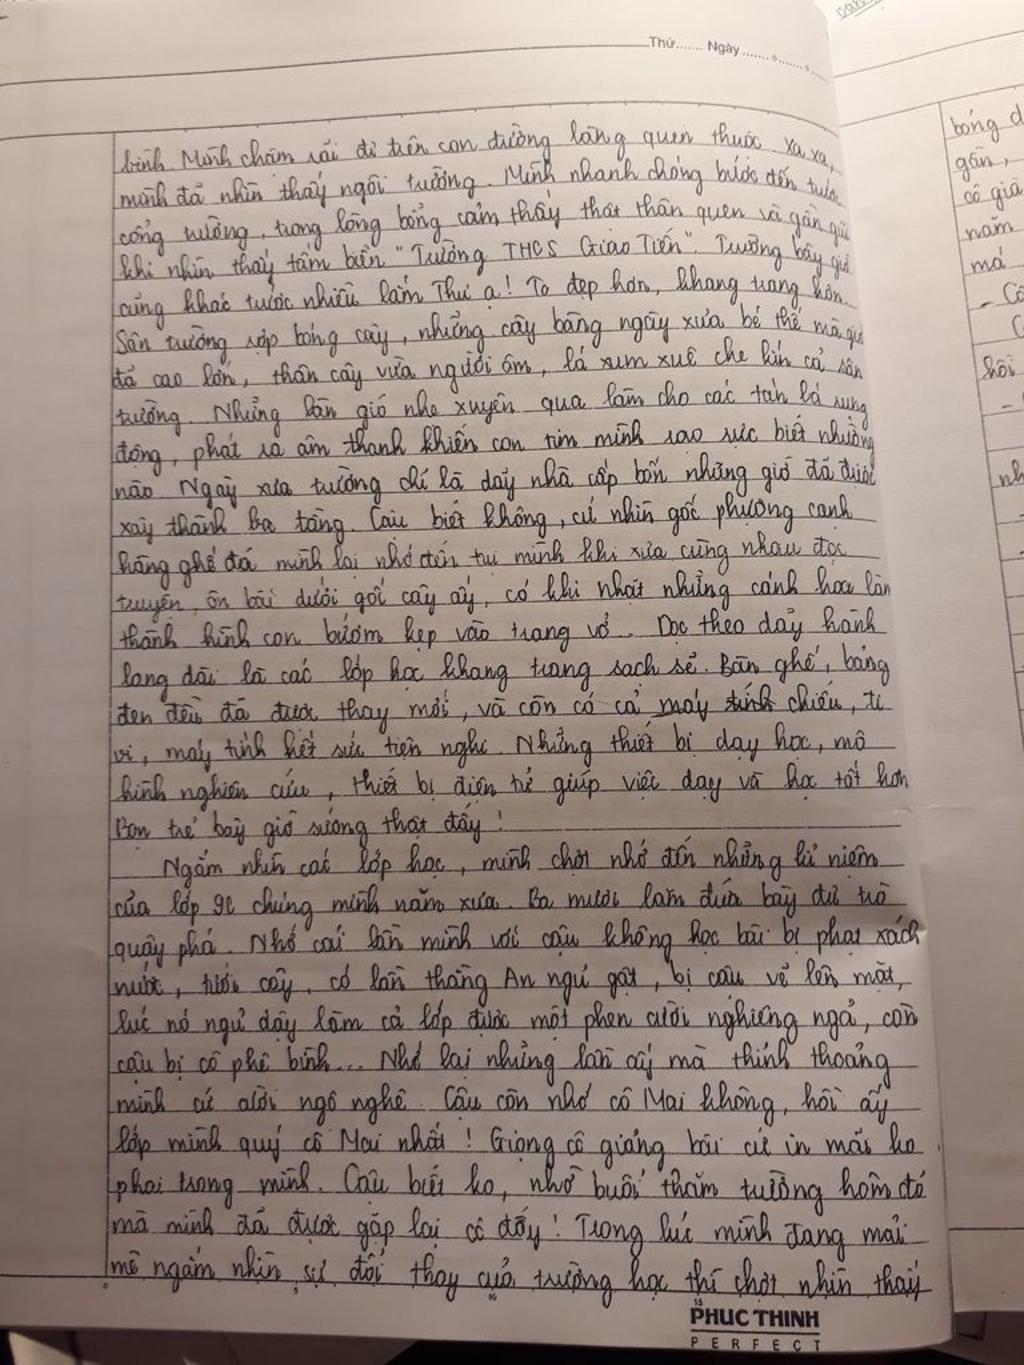 Thứ....... Ngày.......
bình. Mình chậm rãi đi trên con đường làng quen thuộc. Xa xa,
mình đã nhìn thấy ngôi trường. Mình nhanh chóng bước đến trước
cổng trường, trong lòng bỗng cảm thấy thật thân quen và gần gũi
khi nhìn thấy tấm biển "Trường THCS Giao Tiến". Trường bây giờ
cũng khác trước nhiều lắm Thư ạ! To đẹp hơn, khang trang hơn.
Sân trường rợp bóng cây, những cây bàng ngày xưa bé thế mà giờ
đã cao lớn, thân cây vừa người ôm, lá xum xuê che kín cả sân
trường. Những làn gió nhẹ xuyên qua làm cho các tán lá rung
động, phát ra âm thanh khiến con tim mình xao xúc biết nhường
nào. Ngày xưa trường chỉ là dãy nhà cấp bốn nhưng giờ đã được
xây thành ba tầng. Cậu biết không, cứ nhìn gốc phượng cạnh
hàng ghế đá mình lại nhớ đến tụi mình khi xưa cùng nhau đọc
truyện, ôn bài dưới gốc cây ấy, có khi nhặt những cánh hoa làm
thành hình con bướm kẹp vào trang vở. Dọc theo dãy hành
lang dài là các lớp học khang trang sạch sẽ. Bàn ghế, bảng
đen đều đã được thay mới, và còn có cả máy chiếu, ti
vi, máy tính hết sức tiện nghi. Những thiết bị dạy học, mô
hình nghiên cứu, thiết bị điện tử giúp việc dạy và học tốt hơn
Bọn trẻ bây giờ sướng thật đấy!
Ngắm nhìn các lớp học, mình chợt nhớ đến những kỉ niệm
của lớp 9C chúng mình năm xưa. Ba mươi lăm đứa bày đủ trò
quậy phá. Nhớ cái lần mình với cậu không học bài bị phạt xách
nước, tưới cây, có lần thằng An ngủ gật, bị cậu vẽ lên mặt,
lúc nó ngủ dậy làm cả lớp được một phen cười nghiêng ngả, còn
cậu bị cô phê bình... Nhớ lại những lần ấy mà thỉnh thoảng
mình cứ cười ngô nghê. Cậu còn nhớ cô Mai không, hồi ấy
lớp mình quý cô Mai nhất! Giọng cô giảng bài cứ in mãi ko
phai trong mình. Cậu biết ko, nhờ buổi thăm trường hôm đó
mà mình đã được gặp lại cô đấy! Trong lúc mình đang mải
mê ngắm nhìn sự đổi thay của trường học thì chợt nhìn thấy
15
PHUC THINH
PERFECT
bóng d
gần,
cô giá
năm
má
- Cô
hồi
nh